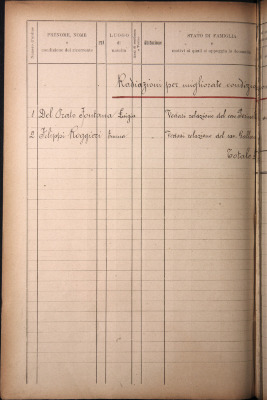 PRENOME, NOME
e
condizione del ricorrente
LUOGO
di
nascita
Abitazione
STATO DI FAMIGLIA
e
motivi ai quali si appoggia la domanda
Radiazioni per migliorate condizio
1 Del Prato Fontana Luigia Vedasi relazione del cav.
2 Filippi Roggieri Emma Vedasi relazione del cav.
Totale